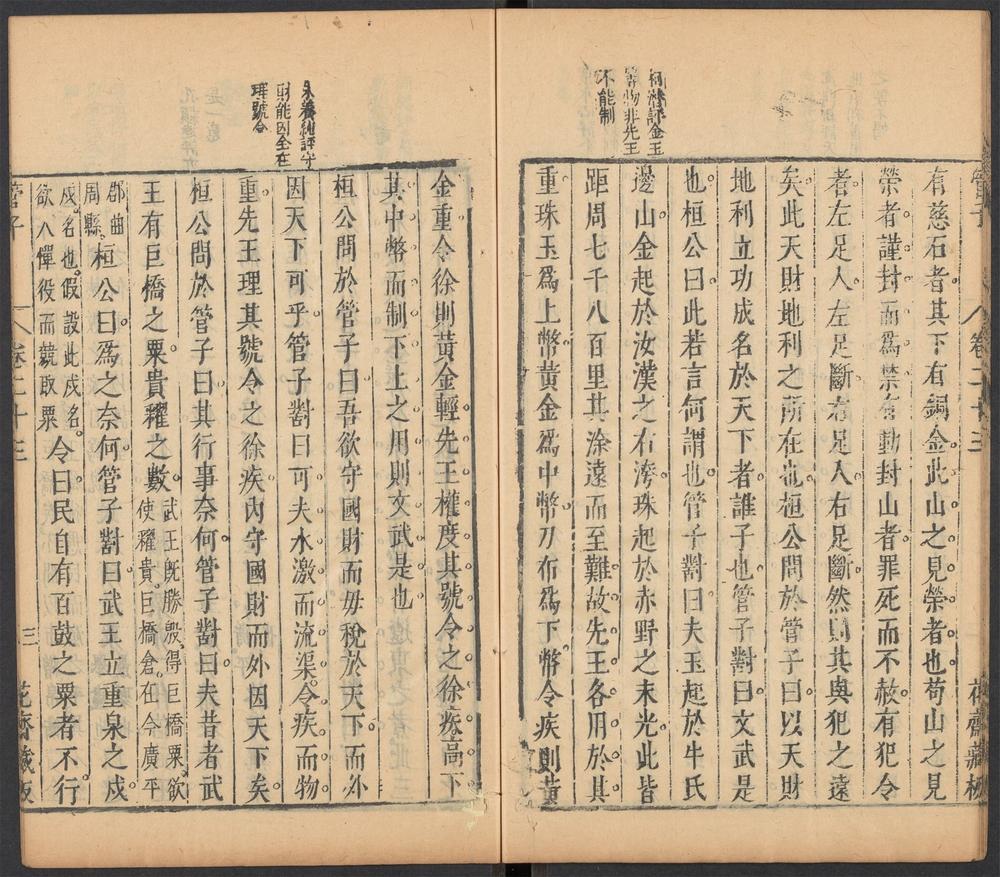 管子
卷二十三
花齋藏板
有慈石者其下有銅金此山之見榮者也苟山之見
榮者謹封而爲禁有動封山者罪死而不赦有犯令
者左足入左足斷右足入右足斷然則其與犯之遠
矣此天財地利之所在也桓公問於管子曰以天財
地利立功成名於天下者誰子也管子對曰文武是
也桓公曰此若言何謂也管子對曰夫玉起於牛氏
邊山金起於汝漢之右洿珠起於赤野之末光此皆
距周七千八百里其涂遠而至難故先王各用於其
重珠玉爲上幣黃金爲中幣刀布爲下幣令疾則黃
評金玉
等物非先王
不能制
金重令徐則黃金輕先王權度其號令之徐疾高下
其中幣而制下上之用則文武是也
桓公問於管子曰吾欲守國財而毋稅於天下而外
因天下可乎管子對曰可夫水激而流渠令疾而物
重先王理其號令之徐疾內守國財而外因天下矣
桓公問於管子曰其行事奈何管子對曰夫昔者武
王有巨橋之粟貴糴之數
武王既勝殷得巨橋粟欲
使糴貴巨橋倉在今廣平
郡曲
周縣
桓公曰爲之奈何管子對曰武王立重泉之戍
戍名也假設此戍名
欲人憚役而競取粟
令曰民自有百鼓之粟者不行
朱養純評守
財能因全在
理號令
管子
卷二十三
三
花齋藏板